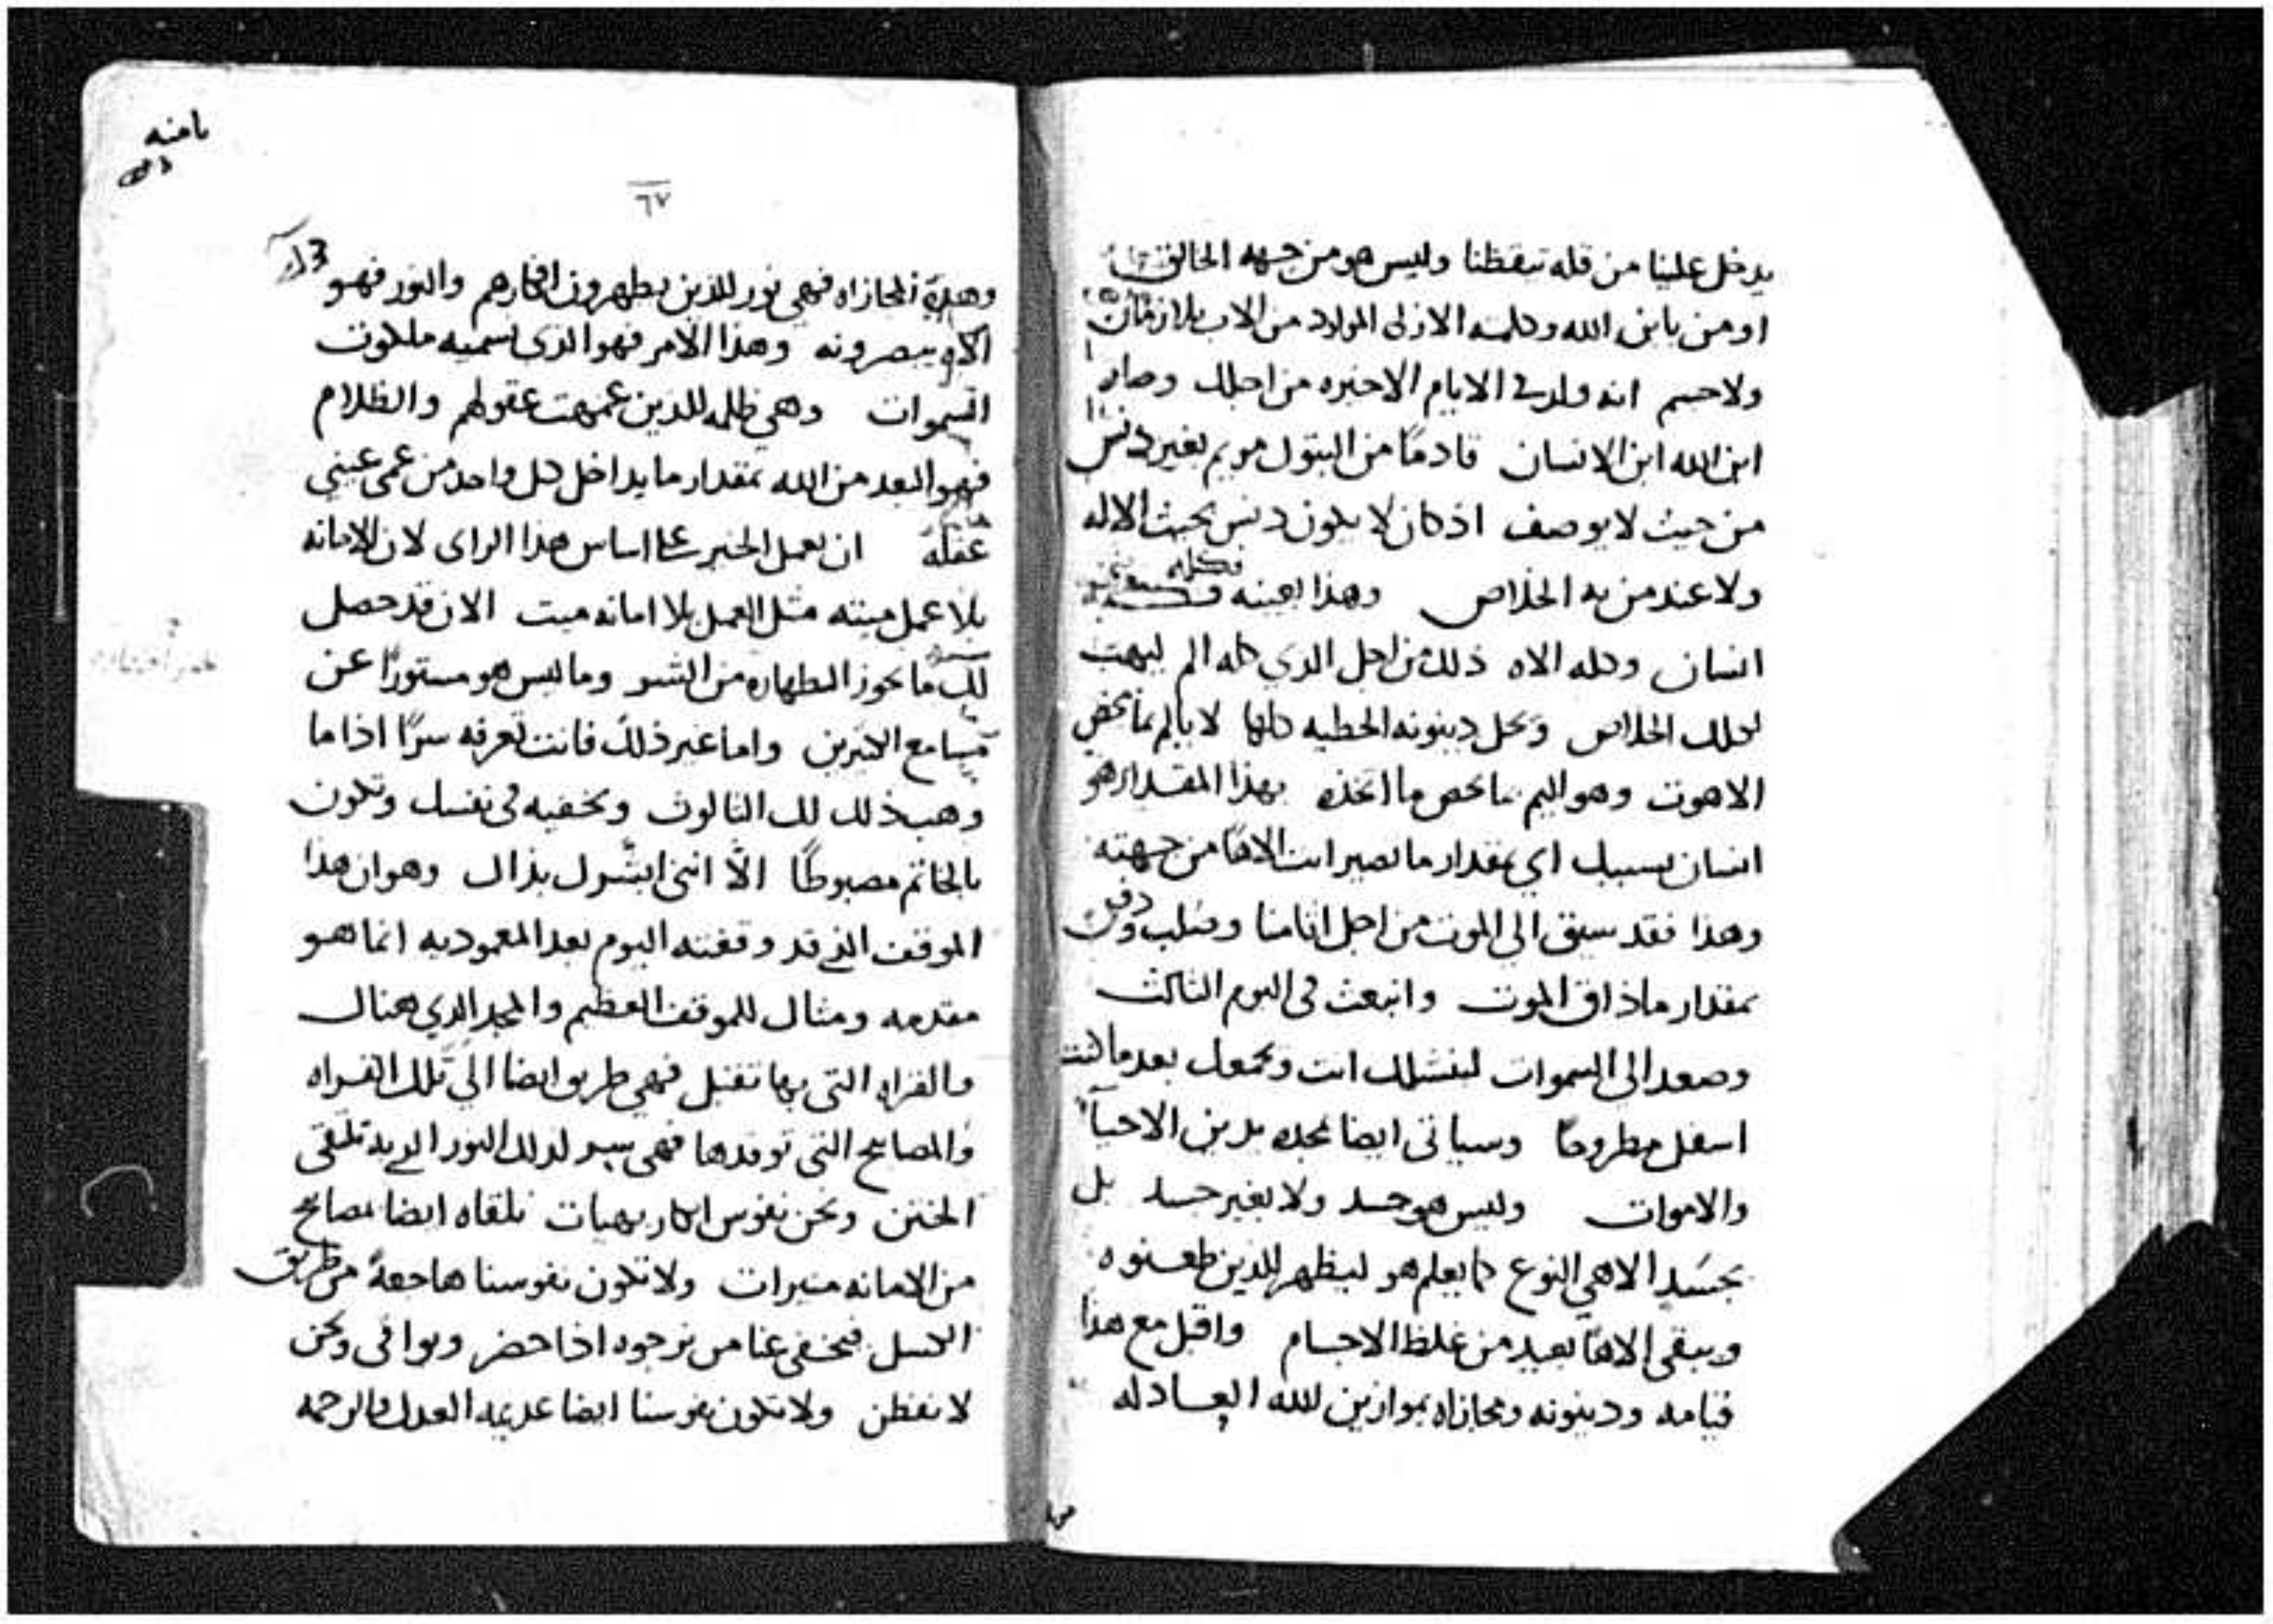 يدخل علينا من قله تيقظنا وليس هو من جهه الخالق
اومن بابن الله وكلمته الازلى المولود من الاب بلا زمان
ولا جسم انه ولد في الايام الاخيره من اجلك وصار
ابن الله ابن الانسان قادمًا من البتول مريم بغير دنس
من حيث لا يوصف اذ كان لا يكون دنس بحيث الاله
ولا عند من به الخلاص وهذا بعينه فكله
انسان وكله الاه ذلك من اجل الذي كله الم ليهب
لكلك الخلاص ويحل دينونه الخطيه كلها لا يالم بما يخص
الاهوت وهو اليم بما يخص ما اتخذه بهذا المقدار هو
انسان بسببك اي بمقدار ما تصير انت الاهًا من جهته
وهذا فقد سيق الى الموت من اجل اثامنا وصلب ودفن
بمقدار ما ذاق الموت وانبعث في اليوم الثالث
وصعد الى السموات لينشلك انت ويجمعك بعد ما كنت
اسفل مطروحًا وسياتي ايضا بمجده يدين الاحيآ
والاموات وليس هو جسد ولا بغير جسد بل
بجسَدِ الاهي النوع كما يعلم هو ليظهر للذين طعنوه
ويبقى الاهًا بعيد من غلظ الاجسام واقبل مع هذا
قيامه ودينونه ومجازاه بموازين لله العادله
يامنه
٦٧
وهذه المجازاه فهي نور للذين يطهرون افكارهم والنور فهو
الاه يبصرونه وهذا الامر فهو الذي نسميه ملكوت
السموات وهي ظلمه للذين عميت عقولهم والظلام
فهو البعد من الله بمقدار ما يداخل كل واحد من عمى عيني
عقله ان تعمل الخير على اساس هذا الراى لان الامانه
بلا عمل ميته مثل العمل بلا امانه ميت الان قد حصل
لك ما يجوز اظهاره من السر وما ليس هو مستورًا عن
مسامع الاكثرين واما غير ذلك فانت تعرفه سرًا اذا ما
وهب ذلك لك الثالوث وتخفيه في نفسك وتكون
بالخاتم مضبوطًا الاّ انني ابشّرك بذاك وهو ان هذا
الموقف الذي قد وقفته اليوم بعد المعموديه انما هو
مقدمه ومثال للموقف العظيم والمجد الذي هناك
والقراه التي بها تقبل فهي طريق ايضا الى تلك القراه
والمصابيح التي توقدها فهي سر لذلك النور الذي به نلتقي
الختن ونحن نفوس ابكار بهيات نلقاه ايضا بمصابيح
من الامانه منيرات ولا تكون نفوسنا هاجعةً من طريق
الكسل فيخفى عنا من نرجوه اذا حضر ويوافي ونحن
لا نفطن ولا تكون نفوسنا ايضا عديمه العدل والرحمه